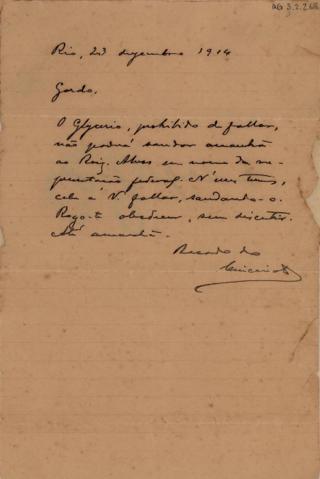 AG 3.2.268
Rio, 23 dezembro 1914
Gordo.
O Glycerio, prohibido de fallar,
não poderá saudar amanhã
ao Roiz. Alves em nome da re-
presentação federal. N'esses termos,
cabe a V. fallar, saudando-o.
Rogo-te obedecer, sem discutir.
Até amanhã.